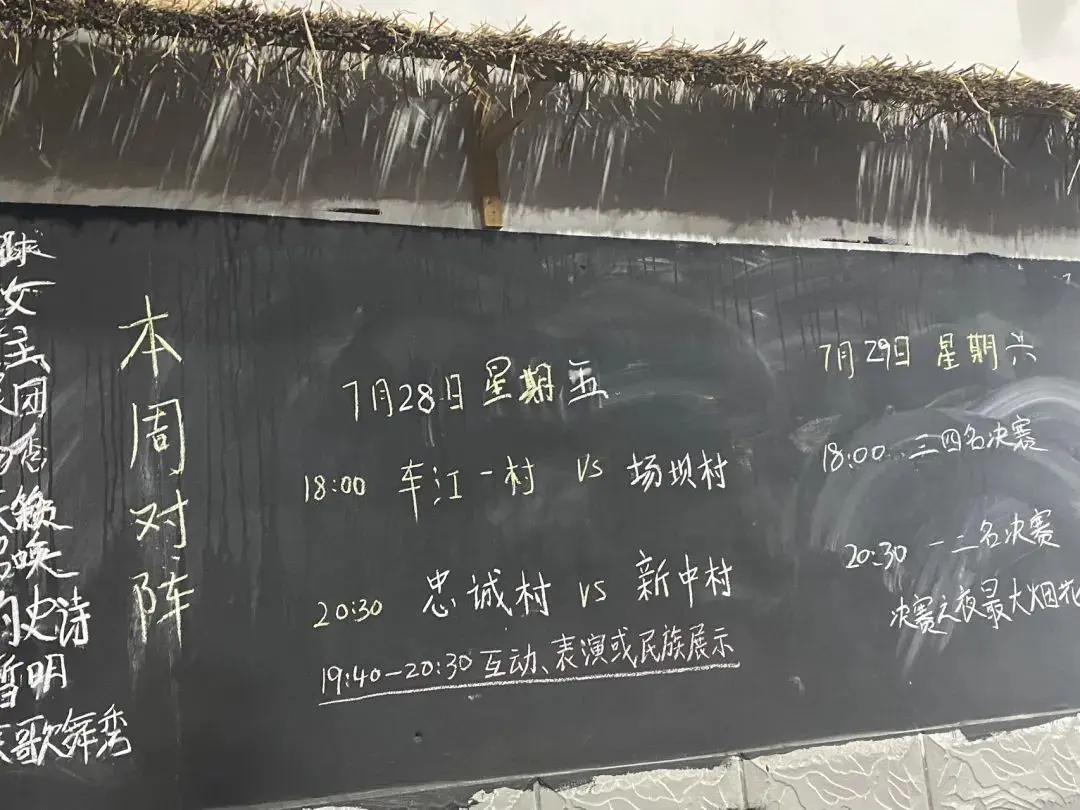 球
女
团
秀
天籁
唤
的史诗
明
歌舞秀
本周对阵
7月28日星期五
18:00 车江一村 VS 场坝村
20:30 忠诚村 VS 新中村
19:40—20:30 互动、表演或民族展示
7月29日 星期六
18:00 三四名决赛
20:30 一二名决赛
决赛之夜最大烟花